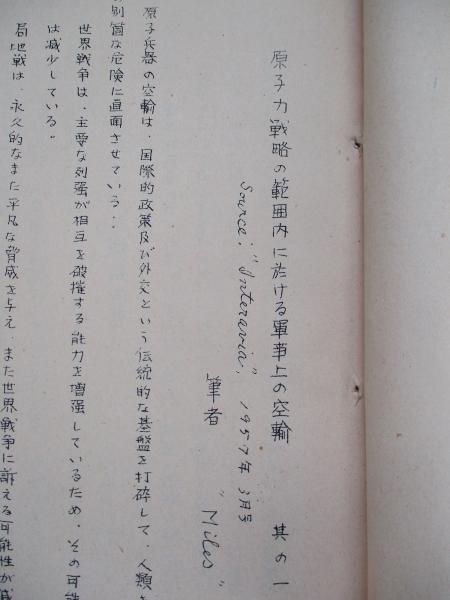 原子力戦略の範囲内に於ける軍事上の空輸　其の一
Source: "Interavia", 1957年3月号
筆者 "Miles"
原子兵器の空輸は、国際的政策及び外交という伝統的な基盤を打砕して、人類を
別箇な危険に直面させている。
世界戦争は、主要な列強が相互を破摧する能力を増强しているため、その可能
は減少している。
局地戦は、永久的なまた平凡な脅威を与え、また世界戦争に訴える可能性が減